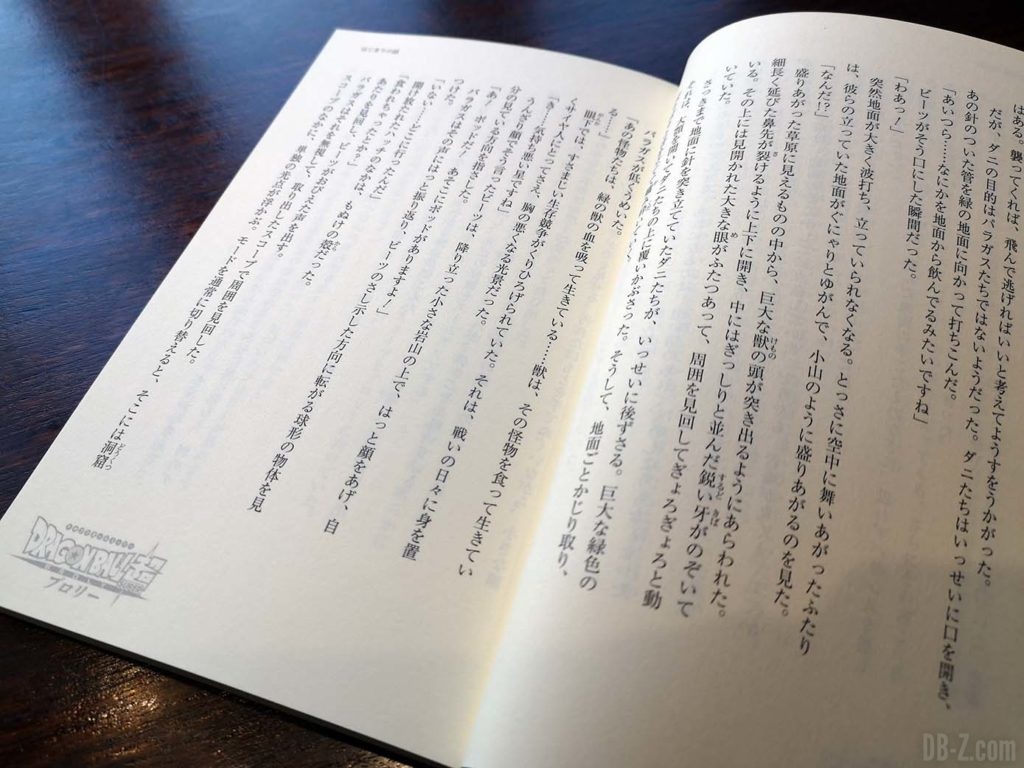 はある。襲ってくれば、飛んで逃げればいいと考えてようすをうかがった。
だが、ダニの目的は、パラガスたちではないようだった。ダニたちはいっせいに口を開き、
あの針のついた管を緑の地面に向かって打ちこんだ。
「あいつら……なにかを地面から飲んでるみたいですね」
ビーツがそう口にした瞬間だった。
「わあっ!」
突然地面が大きく波打ち、立っていられなくなる。とっさに空中に舞いあがったふたり
は、彼らの立っていた地面がぐにゃりとゆがんで、小山のように盛りあがるのを見た。
「なんだ!?」
盛りあがった草原に見えるものの中から、巨大な獣の頭が突き出るようにあらわれた。
細長く延びた鼻先が裂けるように上下に開き、中にはぎっしりと並んだ鋭い牙がのぞいて
いる。その上には見開かれた大きな眼がふたつあって、周囲を見回してぎょろぎょろと動
いていた。
さっきまで地面に針を突き立てていたダニたちが、いっせいに後ずさる。巨大な緑色の
ダニたちの上に覆いかぶさった。そうして、地面ごとかじり取り、
パラガスが低くうめいた。
「あの怪物たちは、緑の獣の血を吸って生きている……獣は、その怪物を食って生きてい
る……」
眼下では、すさまじい生存競争がくりひろげられていた。それは、戦いの日々に身を置
くサイヤ人にとってさえ、胸の悪くなる光景だった。
「き……気持ち悪い星ですね」
うんざり顔でそう言ったビーツは、降り立った小さな岩山の上で、はっと顔をあげ、自
分の見ている方向を指さした。
「あ! ポッドだ! あそこにポッドがありますよ!」
パラガスはその声にはっと振り返り、ビーツのさし示した方向に転がる球形の物体を見
つけた。
「いない……どこに行ったんだ」
開け放たれたハッチのなかは、もぬけの殻だった。
「食われちゃったんじゃ」
あたりを見回し、ビーツがおびえた声を出す。
パラガスはそれを無視して、取り出したスコープで周囲を見回した。
スコープのなかに、単独の光点が浮かぶ。モードを通常に切り替えると、そこには洞窟
DRAGONBALL超
ブロリー
DB-Z.com